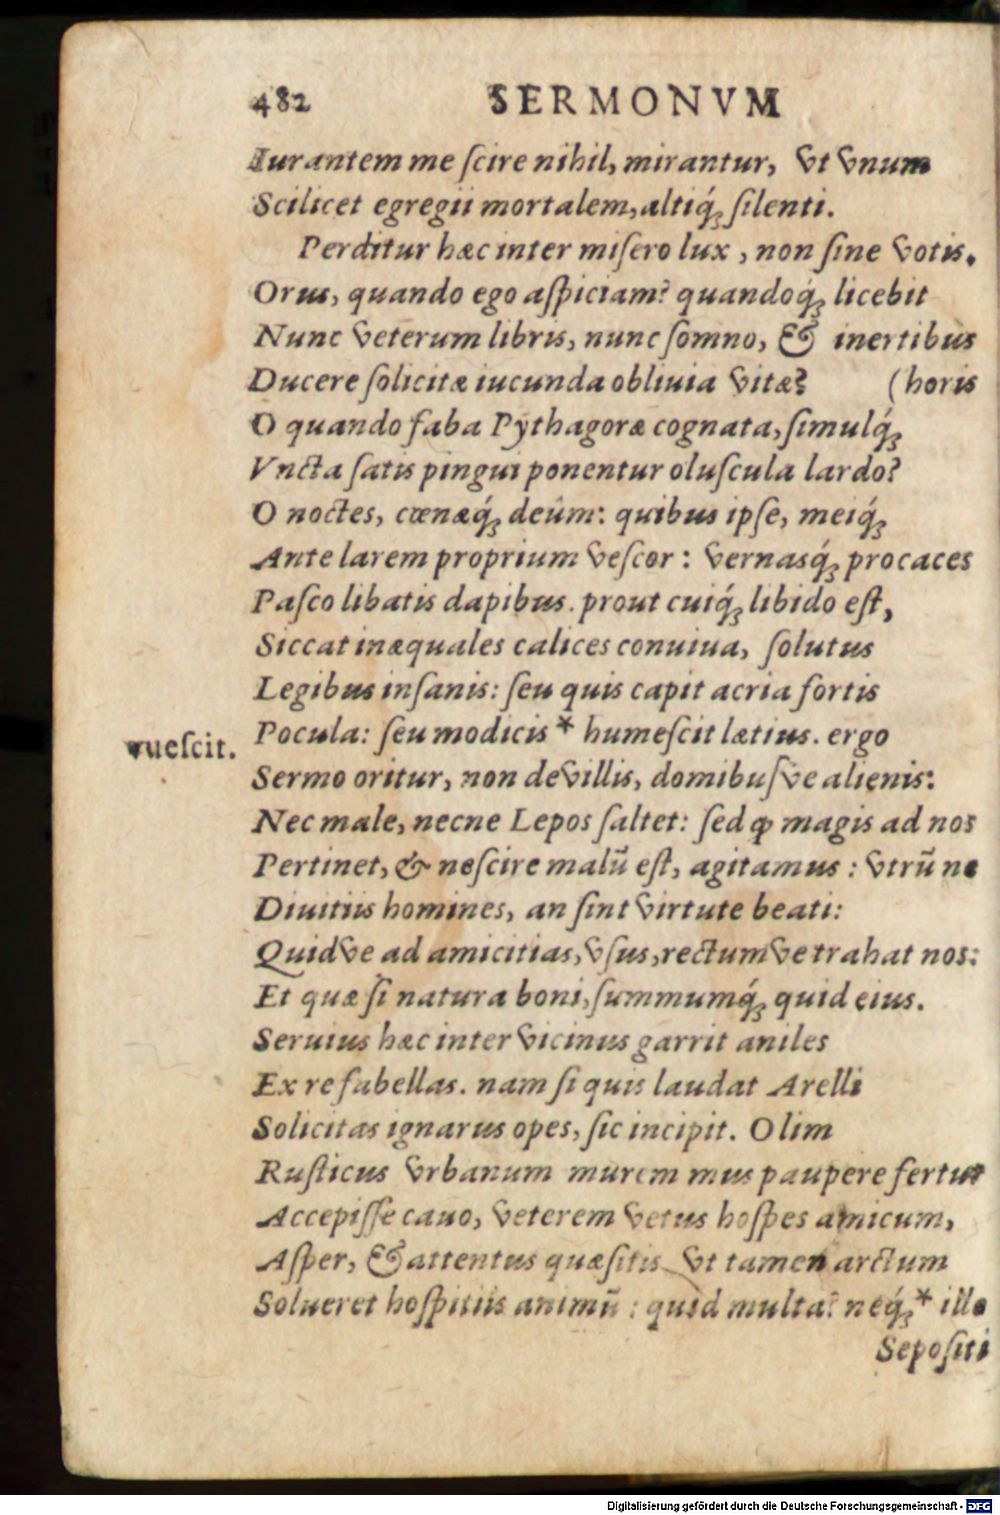 482 SERMONVM
Iurantem me ſcire nihil, mirantur, vt vnum
Scilicet egregii mortalem, altiq́ꝫ ſilenti.
Perditur hæc inter miſero lux, non ſine votis.
Orus, quando ego aſpiciam? quandoq́ꝫ licebit
Nunc veterum libris, nunc ſomno, & inertibus
Ducere ſolicitæ iucunda obliuia vitæ? (horis
O quando faba Pythagoræ cognata, ſimulq́ꝫ
Vncta ſatis pingui ponentur oluſcula lardo?
O noctes, cœnæq́ꝫ deûm: quibus ipſe, meiq́ꝫ
Ante larem proprium veſcor: vernasq́ꝫ procaces
Paſco libatis dapibus. prout cuiq́ꝫ libido eſt,
Siccat inæquales calices conuiua, ſolutus
Legibus inſanis: ſeu quis capit acria fortis
Pocula: ſeu modicis * humeſcit lætius. ergo
vueſcit.
Sermo oritur, non de villis, domibuſve alienis:
Nec male, necne Lepos ſaltet: ſed ꝙ magis ad nos
Pertinet, & neſcire malũ eſt, agitamus: vtrũ ne
Diuitiis homines, an ſint virtute beati:
Quidve ad amicitias, vſus, rectumve trahat nos:
Et quæ ſi natura boni, ſummumq́ꝫ quid eius.
Seruius hæc inter vicinus garrit aniles
Ex re fabellas. nam ſi quis laudat Arelli
Solicitas ignarus opes, ſic incipit. Olim
Ruſticus vrbanum murem mus paupere fertur
Accepiſſe cauo, veterem vetus hoſpes amicum,
Aſper, & attentus quæſitis vt tamen arctum
Solueret hoſpitiis animũ: quid multa? neq́ꝫ * ille
Sepoſiti
Digitalisierung gefördert durch die Deutsche Forschungsgemeinschaft - DFG